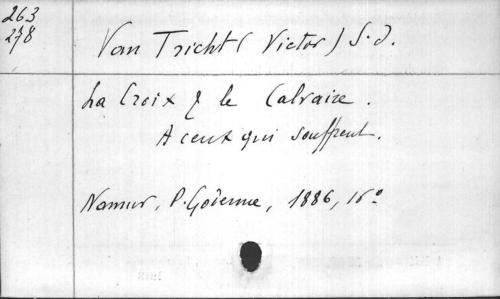 263
278
Van Tricht (Victor) S.J.
La Croix & le Calvaire.
A ceux qui souffrent.
Namur, P. Godenne, 1886, 16°